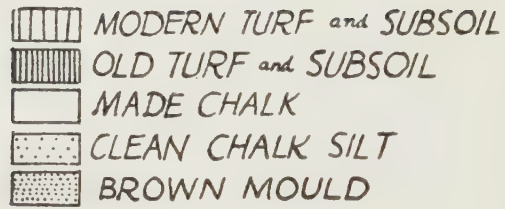 MODERN TURF and SUBSOIL
OLD TURF and SUBSOIL
MADE CHALK
CLEAN CHALK SILT
BROWN MOULD